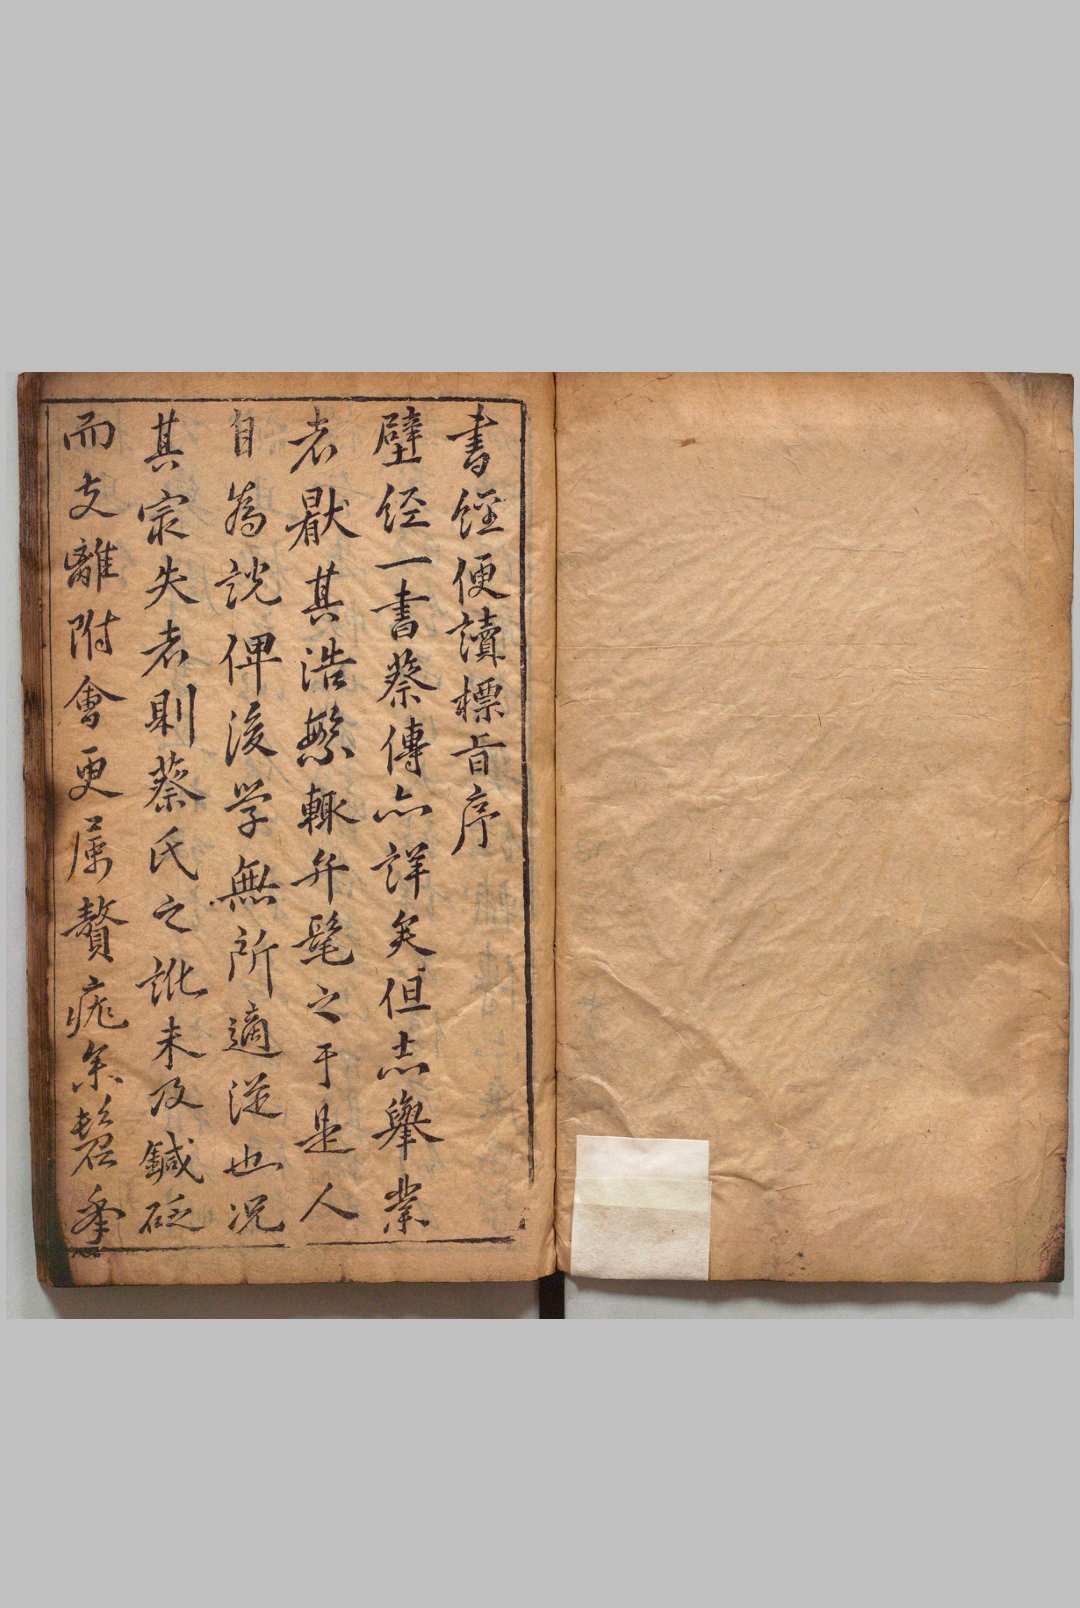 書經便讀標旨序
壁经一書蔡傳亦詳矣但志舉業
者厭其浩繁輙弁髦之于是人
自為説俾後学無所適従也况
其宗失者則蔡氏之訛未及鍼砭
而支離附會更属贅疣余髫年